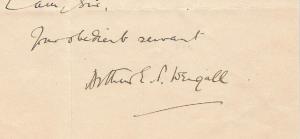 I am, Sir,
Your obedient servant
Arthur E. P. Weigall